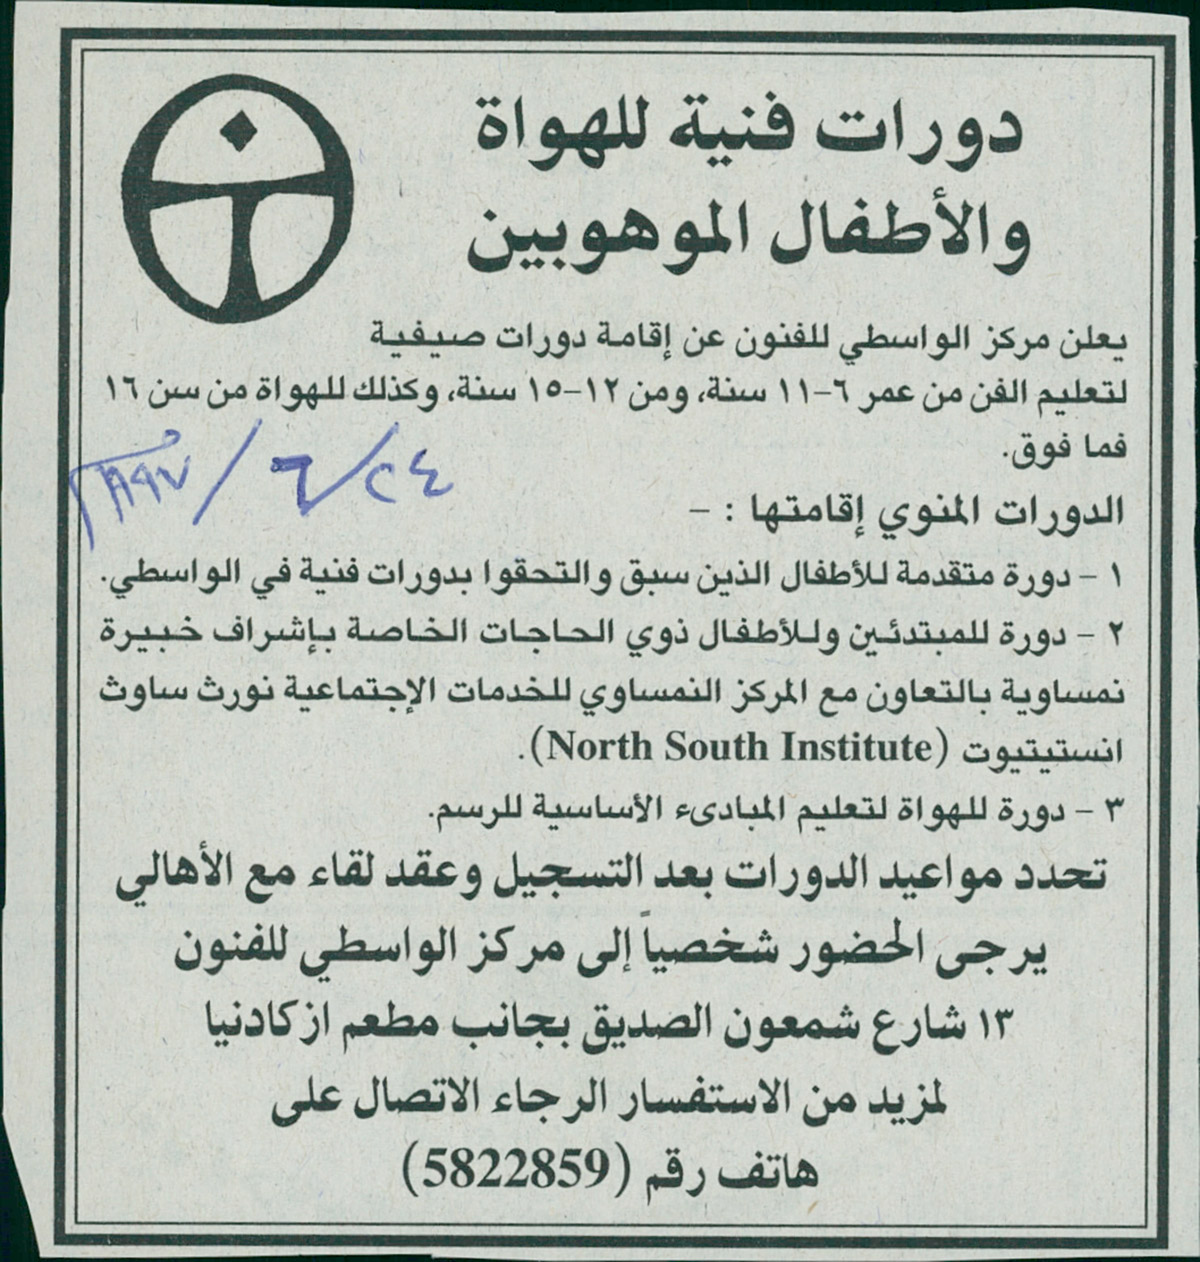 دورات فنية للهواة
والأطفال الموهوبين
يعلن مركز الواسطي للفنون عن إقامة دورات صيفية
لتعليم الفن من عمر ٦-١١ سنة، ومن ١٢-١٥ سنة، وكذلك للهواة من سن ١٦
فما فوق.
٢٤/٦/١٩٩٧
الدورات المنوي إقامتها : -
١ - دورة متقدمة للأطفال الذين سبق والتحقوا بدورات فنية في الواسطي.
٢ - دورة للمبتدئين وللأطفال ذوي الحاجات الخاصة بإشراف خبيرة
نمساوية بالتعاون مع المركز النمساوي للخدمات الإجتماعية نورث ساوث
انستيتيوت (North South Institute).
٣ - دورة للهواة لتعليم المبادىء الأساسية للرسم.
تحدد مواعيد الدورات بعد التسجيل وعقد لقاء مع الأهالي
يرجى الحضور شخصياً إلى مركز الواسطي للفنون
١٣ شارع شمعون الصديق بجانب مطعم ازكادنيا
لمزيد من الاستفسار الرجاء الاتصال على
هاتف رقم (5822859)